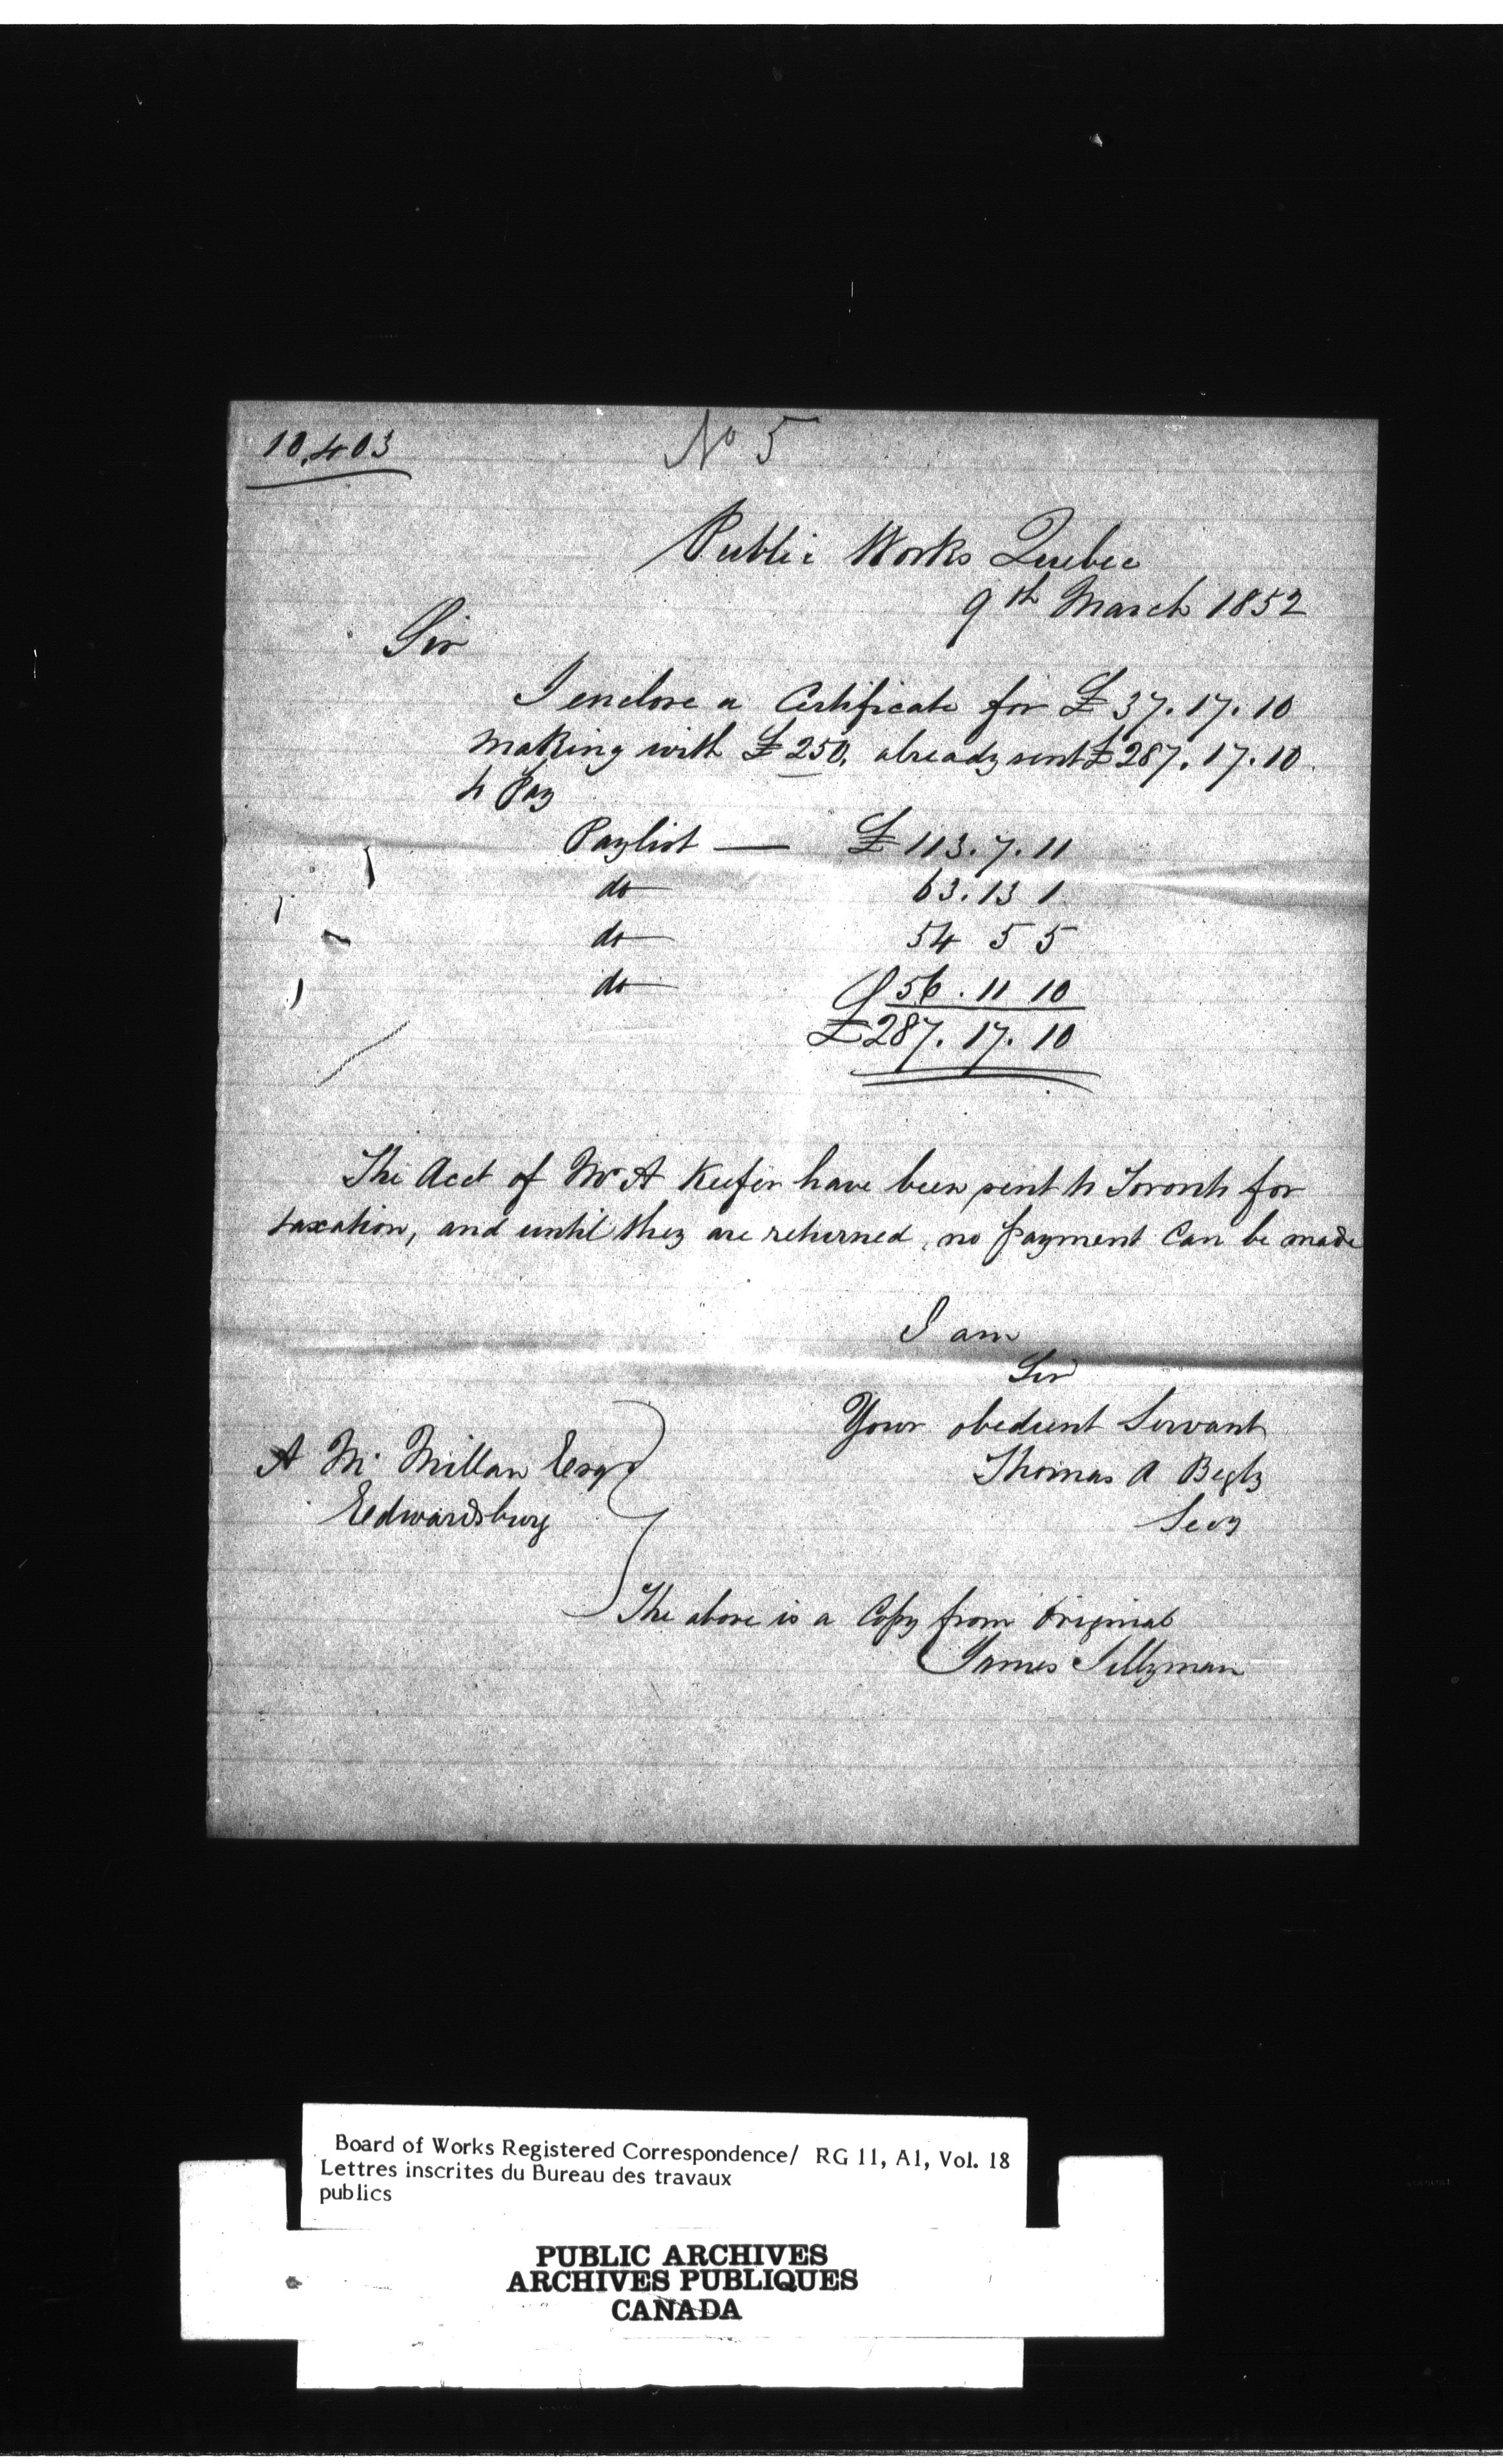 10,403
No 5
Public Works Quebec
9th March 1852
Sir
I enclose a Certificate for £37.17.10
making with £250, already sent £287.17.10
to Pay
Paylist — £113.7.11
do 63.13 1
do 54 5 5
do 56.11 10
£287.17.10
The Acct of Mr A Keefer have been sent to Toronto for
taxation, and until they are returned, no payment Can be made
I am
Sir
Your obedient Servant
Thomas A Begly
Secy
A Mc Millan Esqr
Edwardsburg
The above is a Copy from Original
James Sillyman
Board of Works Registered Correspondence/ RG 11, A1, Vol. 18
Lettres inscrites du Bureau des travaux
publics
PUBLIC ARCHIVES
ARCHIVES PUBLIQUES
CANADA